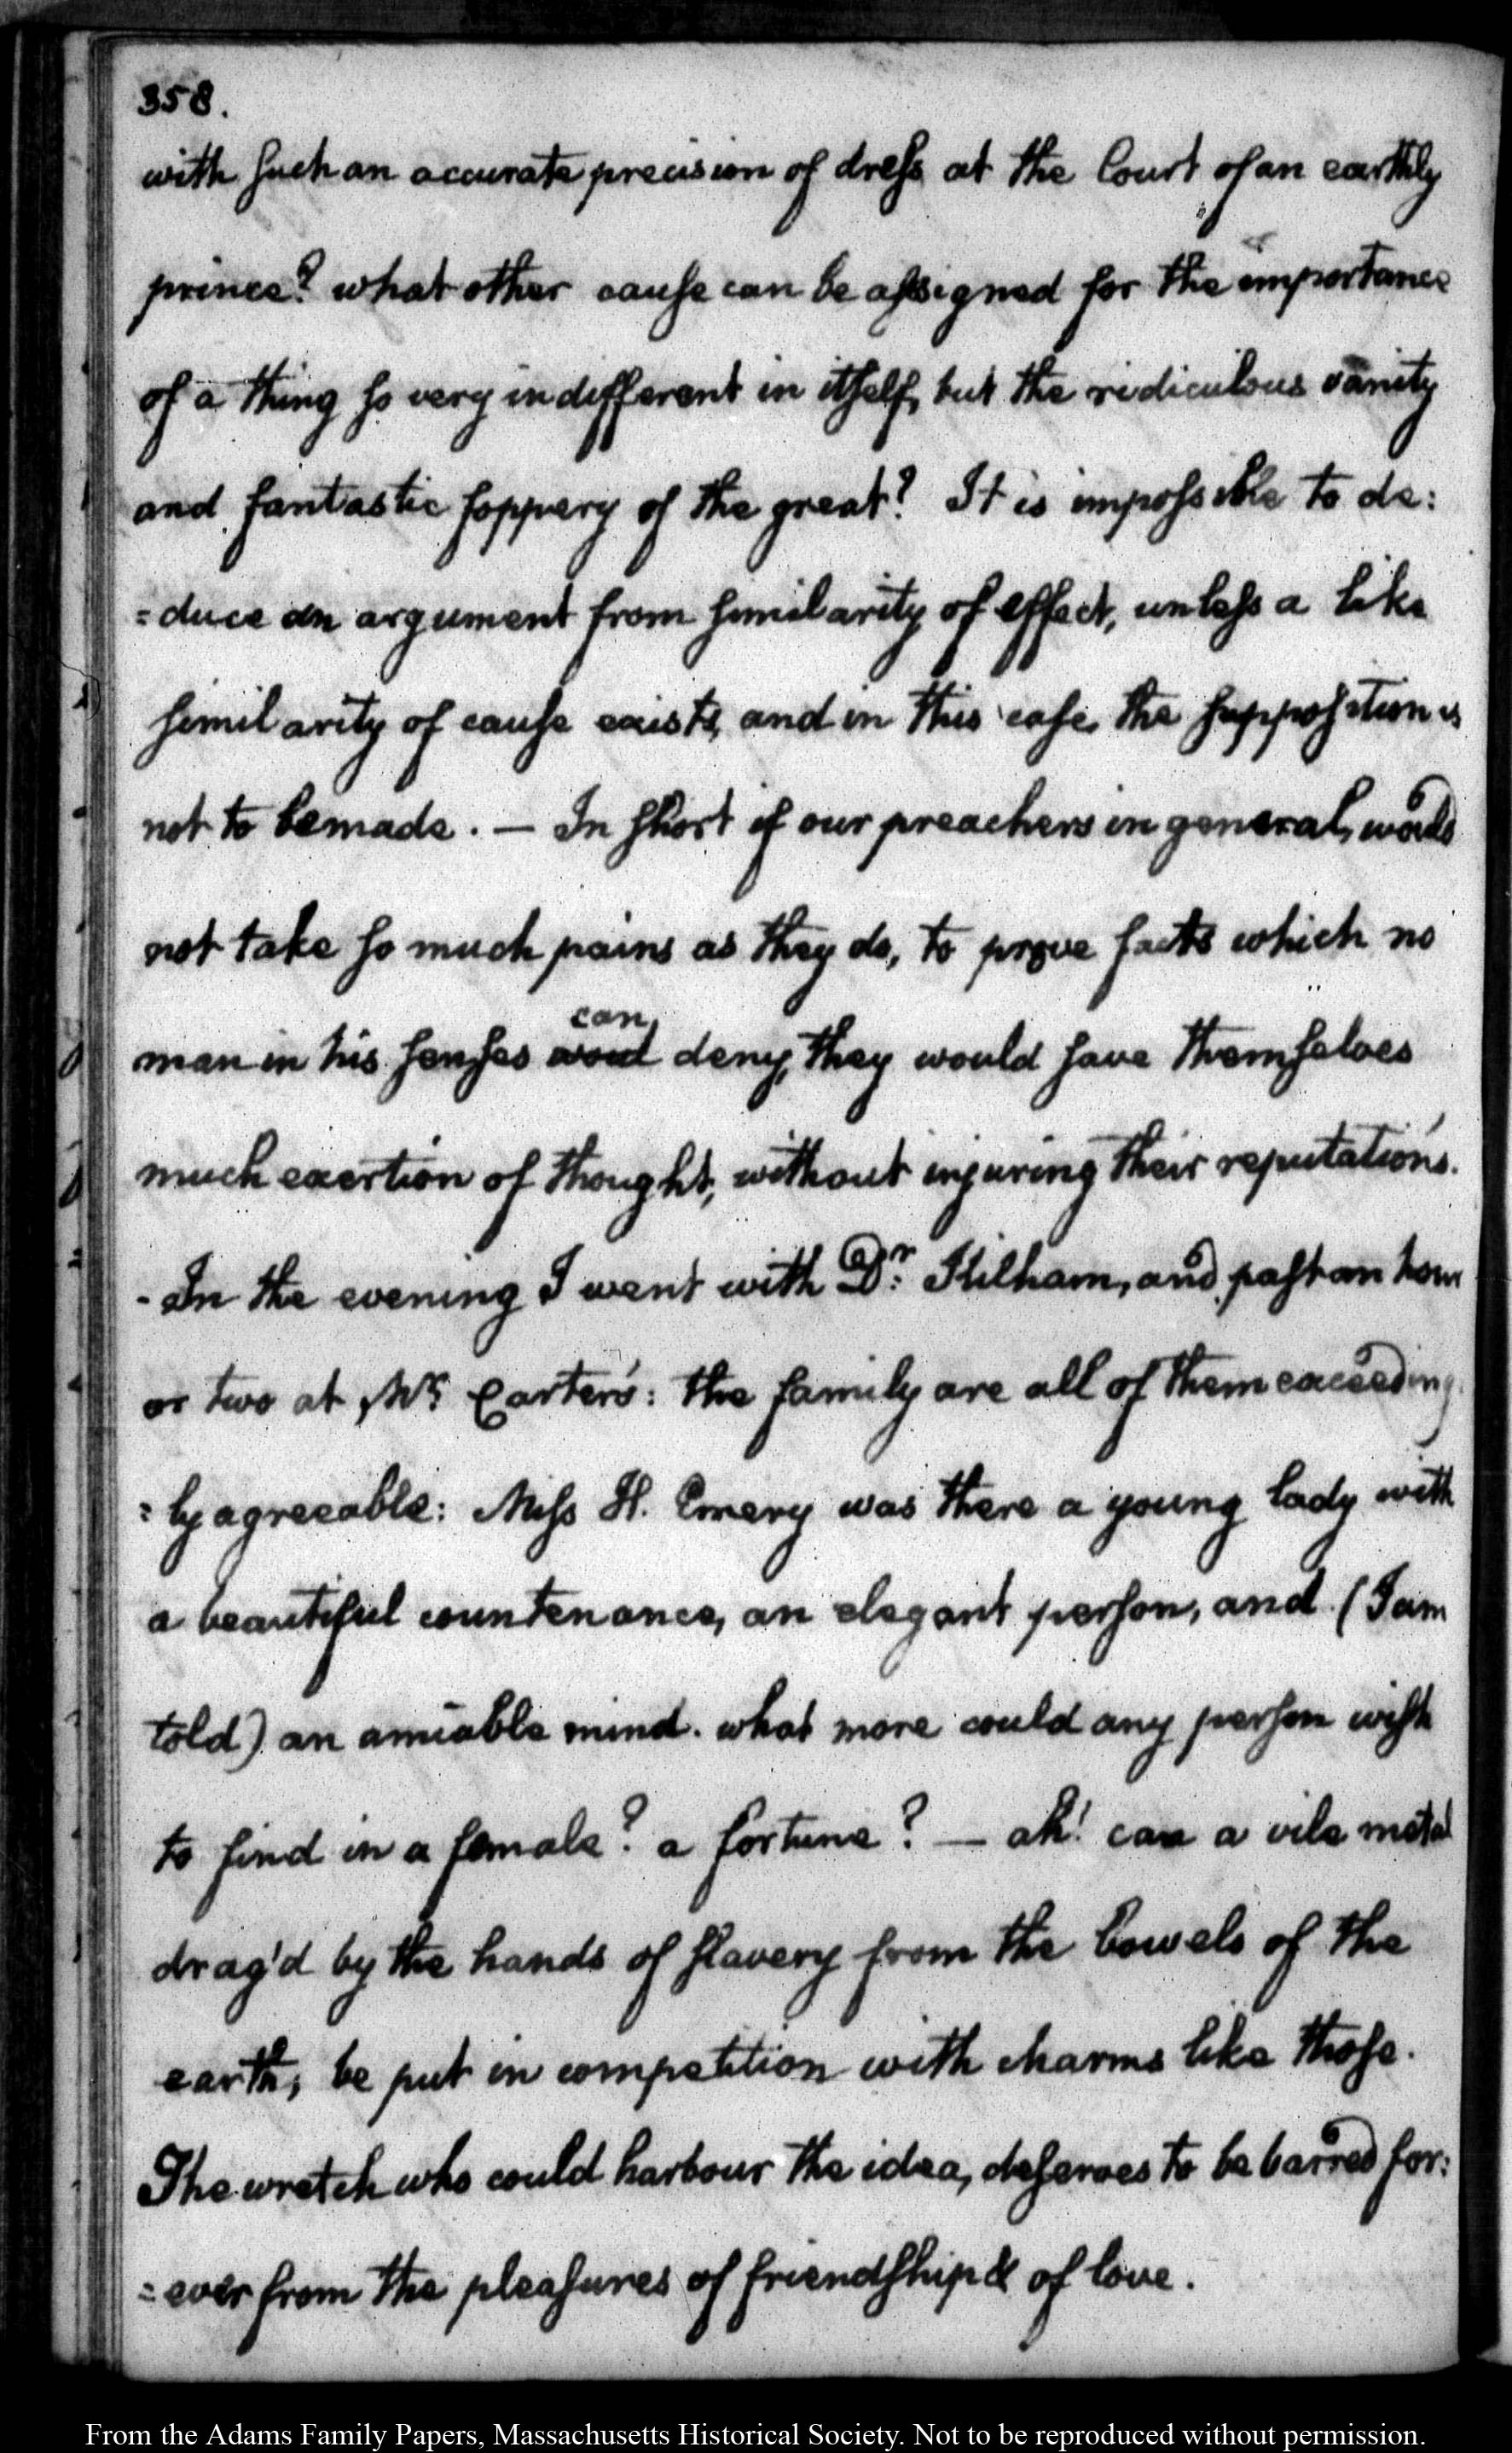 358.
with such an accurate precision of dress at the Court of an earthly
prince? what other cause can be assigned for the importance
of a thing so very indifferent in itself, but the ridiculous vanity
and fantastic foppery of the great? It is impossible to de:
=duce an argument from similarity of effect, unless a like
similarity of cause exists, and in this case, the supposition is
not to be made. — In short if our preachers in general, would
not take so much pains as they do, to prove facts which no
can
man in his senses woud deny, they would save themselves
much exertion of thought, without injuring their reputations.
- In the evening I went with Dr. Kilham, and past an hour
or two at Mr. Carter's: the family are all of them exceeding
=ly agreeable: Miss H. Emery was there a young lady with
a beautiful countenance, an elegant person, and (I am
told) an amiable mind. what more could any person wish
to find in a female? a fortune? — ah! can a vile metal
drag'd by the hands of slavery from the bowels of the
earth, be put in competition with charms like those.
The wretch who could harbour the idea, deserves to be barred for:
=ever from the pleasures of friendship & of love.
From the Adams Family Papers, Massachusetts Historical Society. Not to be reproduced without permission.